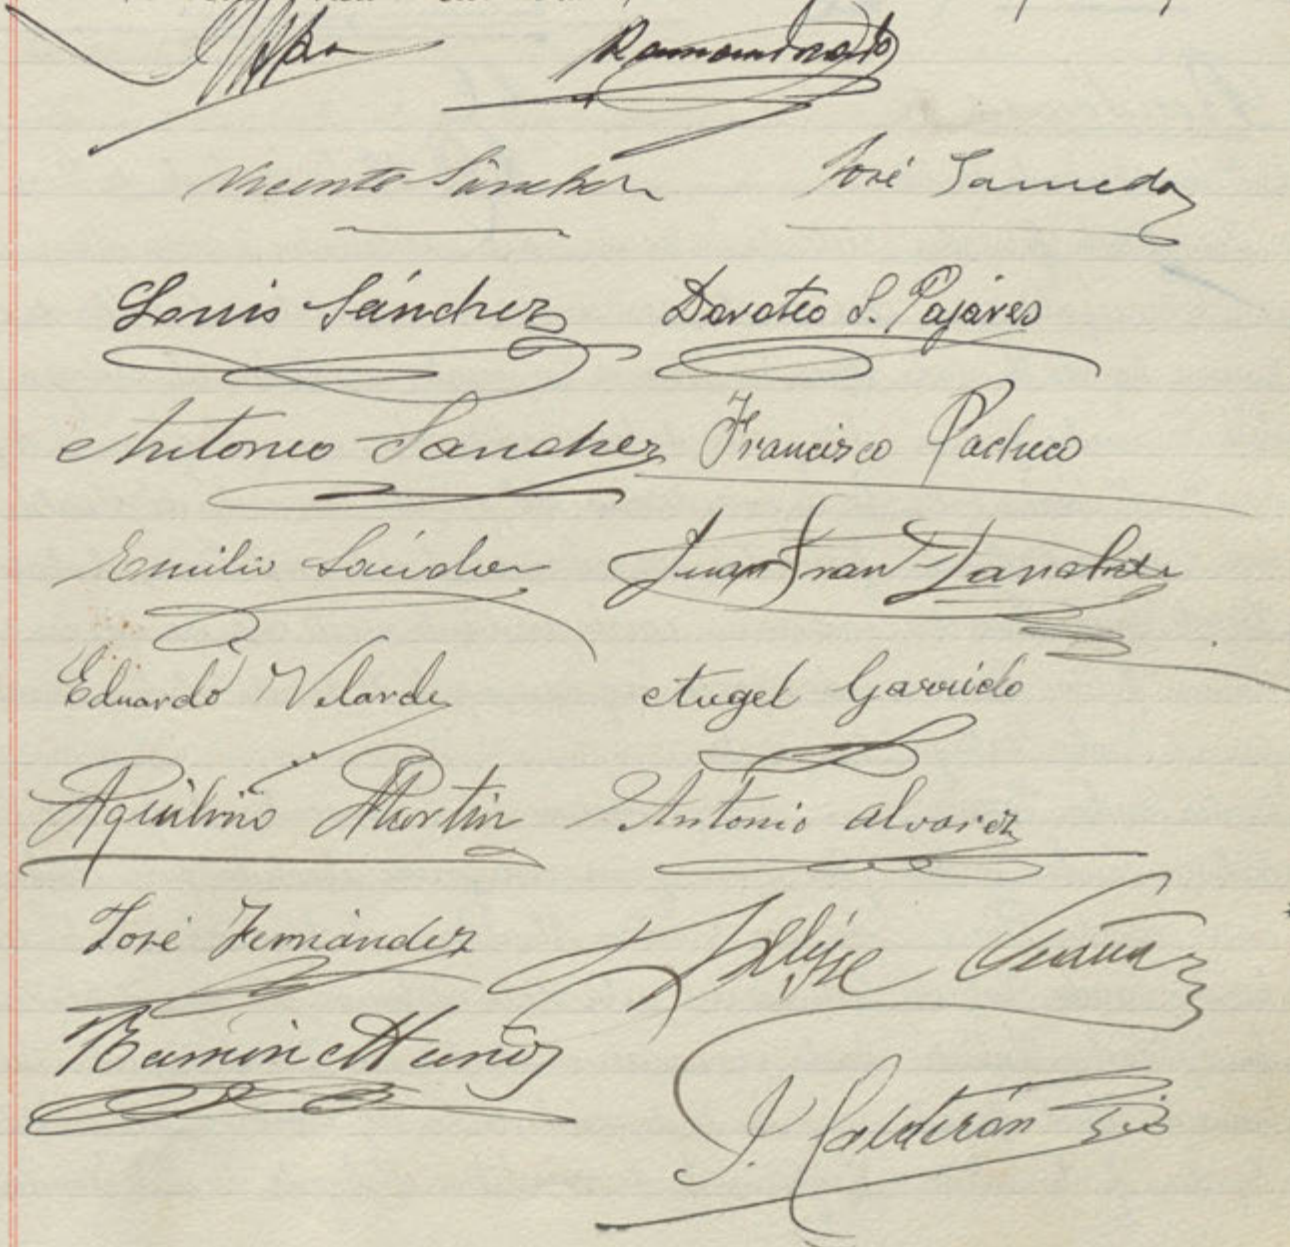 Vicente Sánchez José Sameda
Louis Sánchez Doroteo S. Pajáres
Antonio Sanchez Francisco Pacheco
Emilio Sánchez Juan Fran Sanchez
Eduardo Velarde Angel Garrido
Aquilino Martin Antonio alvarez
José Fernández Felipe
Ramón Muñoz
J. Calderón